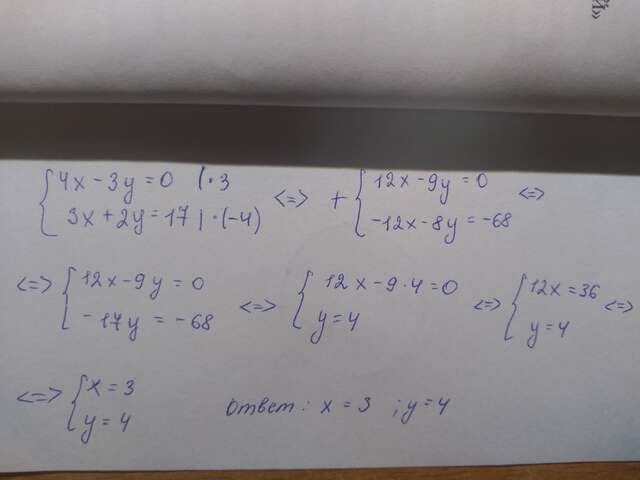 Й»
{4x - 3y = 0 |·3
{3x + 2y = 17 |·(-4) <=> + {12x - 9y = 0
{-12x - 8y = -68 <=>
<=> {12x - 9y = 0
{-17y = -68 <=> {12x - 9·4 = 0
{y = 4 <=> {12x = 36
{y = 4 <=>
<=> {x = 3
{y = 4
Ответ: x = 3 ; y = 4